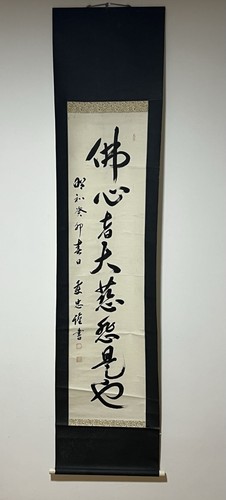 佛心者大慈悲是也
昭和癸卯春日 忠書